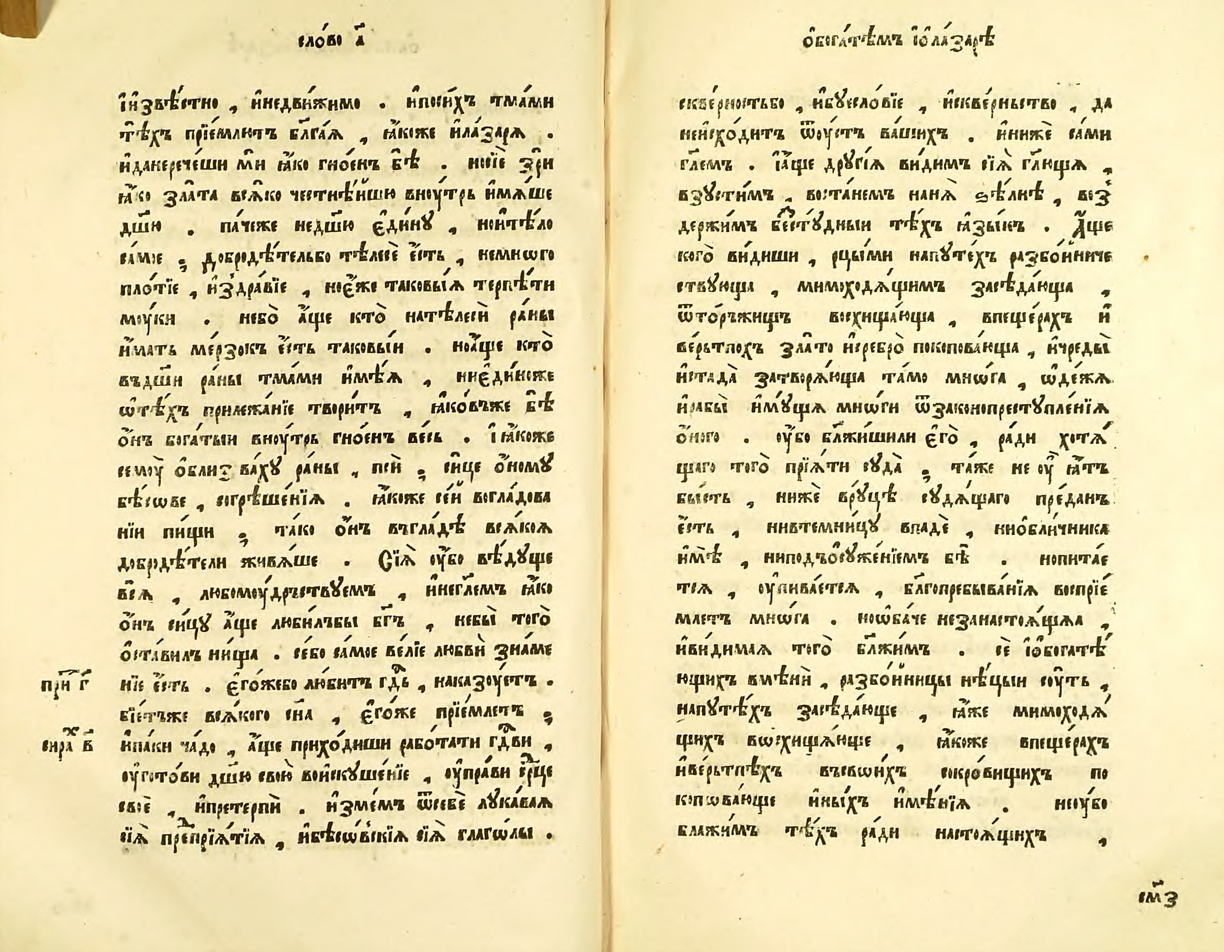 сло́во а҃
і҆извѣ́стно , и҆недви́жимо . и҆поси́хъ тма́ми
тѣ́хъ прїе́млютъ бл҃га́ѧ , ꙗ҆́коже и҆ла́зарѧ .
и҆данерече́ши мѝ ꙗ҆́ко гно́енъ бѣ̀ . носїѐ зрѝ
ꙗ҆́ко зла́та всѧ́ко честнѣ́йшю внꙋ́трь и҆мѧ́ше
дш҃ю . па́чеже недш҃ю є҆ди́нꙋ , нои҆тѣ́ло
са́мое ; добродѣ́тельбо тѣлесѐ є҆́сть , немно́гѡ
пло́тїе , и҆здра́вїе , ноє҆́же таковы́ѧ терпѣ́ти
мꙋ́ки . небо̀ а҆́ще кто̀ нателесѝ ра́ны
и҆́мать ме́рзокъ є҆́сть таковы́и . ноа҆́ще кто̀
въдш҃и ра́ны тма́ми и҆мѣ́ѧ , ниє҆ди́ноже
ѡ҆тѣ́хъ прилежа́нїе твори́тъ , ꙗ҆ко́въже бѣ̀
о҆́нъ бога́тыи внꙋ́трь гно́енъ ве́сь . і҆ ꙗ҆́коже
семꙋ̀ о҆бли́зовахꙋ ра́ны , псѝ ; си́це о҆́номꙋ
бѣ́сѡве , согрѣше́нїѧ . ꙗ҆́коже се́й возгладова
нїи пи́щи ; та́ко о҆́нъ възгла́дѣ всѧ́коѧ
добродѣ́тели живѧ́ше . Сїѧ̀ ᲂу҆̀бо вѣ́дꙋще
всѧ̀ , любомꙋ́дрьствꙋемъ , и҆негл҃емъ ꙗ҆́ко
о҆́нъ си́цꙋ а҆́ще люби́лъбы бг҃ъ , небы̀ того̀
ѡ҆ста́вилъ ни́ща . се́бо са́мое ве́лїе любвѝ зна́ме
при̑ г҃ нїе є҆́сть . є҆го́жебо лю́битъ гд҇ь , наказꙋ́етъ .
бїе́тъже всѧ́кого сн҃а , є҆го́же прїе́млетъ ;
сира́х в҃ и҆па́ки ча́до , а҆́ще прихо́диши рабо́тати гд҇ви ,
ᲂу҆гото́ви дш҃ю свою̀ воискꙋше́нїе , ᲂу҆пра́ви ср҇це
своѐ , и҆претерпѝ . и҆зме́мъ ѿсебѐ лꙋка́ваѧ
сїѧ̀ препрїѧ́тїѧ , и҆бѣсо́вскїѧ сїѧ̀ глаго́лы .
ѡ҆бога́тѣмъ і҆ѡ҆ла́зарѣ
скве́рностьбо , и҆бꙋесло́вїе , и҆скве́рньство , да
неисхо́дитъ ѿᲂу҆́стъ ва́шихъ . и҆нижѐ са́ми
гл҃емъ . і҆а҆́ще дрꙋгі́ѧ ви́димъ сїѧ̀ гл҃ющѧ ,
взꙋсти́мъ , воста́немъ нанѧ̀ ѕѣ́лнѣ , воз
держи́мъ бестꙋ́дныи тѣ́хъ ꙗ҆зы́къ . А҆́ще
кого̀ ви́диши , рцы́ми напꙋте́хъ разбо́йниче
ствꙋюща , мимоходѧ́щимъ засѣда́юща ,
ѿто́ржищъ восхища́юща , впеще́рахъ и҆
ве́рьтпохъ зла́то и҆сребро̀ покопова́юща , и҆чреды̀
и҆стада̀ затворѧ́юща та́мо мнѡ́га , ѡ҆де́жѧ
и҆рабы̀ и҆мꙋ́щѧ мнѡ́ги ѿзаконопрестꙋпле́нїѧ
о҆́ного . ᲂу҆́бо бл҃жи́шили є҆го̀ , ра́ди хотѧ́
щаго того̀ прїѧ́ти сꙋда̀ ; та́же не ᲂу҆̀ ꙗ҆́тъ
бы́сть , нижѐ врꙋ́цѣ сꙋдѧ́щаго пре́данъ
є҆́сть , нивтемни́цꙋ впадѐ , ниѡ҆бличника
и҆мѣ̀ , ниподъѡ҆сꙋже́нїемъ бѣ̀ . нопита́е
тсѧ , ᲂу҆пива́етсѧ , бл҃гопребыва́нїѧ воспрїе́
млетъ мнѡ́га . нооба́че незанастоѧ́щѧа ,
и҆ви́димаѧ того̀ бл҃жи́мъ . сѐ і҆ѡ҆богатѣ́
ющихъ вмѣнѝ , разбо́йницы нѣ́цыи сꙋ́ть ,
напꙋтѣ́хъ засѣда́юще , ꙗ҆́же мимоходѧ́
щихъ восхищѧ́юще , ꙗ҆́коже впеще́рахъ
и҆ве́рьтпѣхъ въсвои́хъ сокро́вищихъ по
копѡва́юще и҆ны́хъ и҆мѣ́нїѧ . неᲂу҆́бо
блажи́мъ тѣ́хъ ра́ди настоѧ́щихъ ,
см҃з